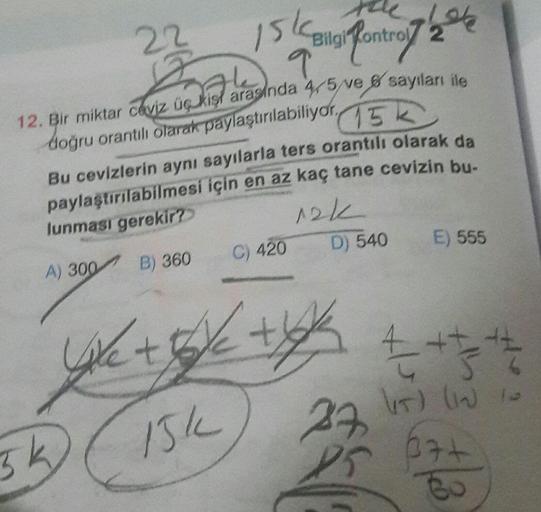 22
15k
Bilgi Kontrol 2
12. Bir miktar ceviz üç kişi arasında 4, 5 ve 6 sayıları ile
doğru orantılı olarak paylaştırılabiliyor.
15k
Bu cevizlerin aynı sayılarla ters orantılı olarak da
paylaştırılabilmesi için en az kaç tane cevizin bu-
lunması gerekir?
12k
A) 300 B) 360 C) 420 D) 540 E) 555
4k + 5k + 6k
15k
37
15
37t
60